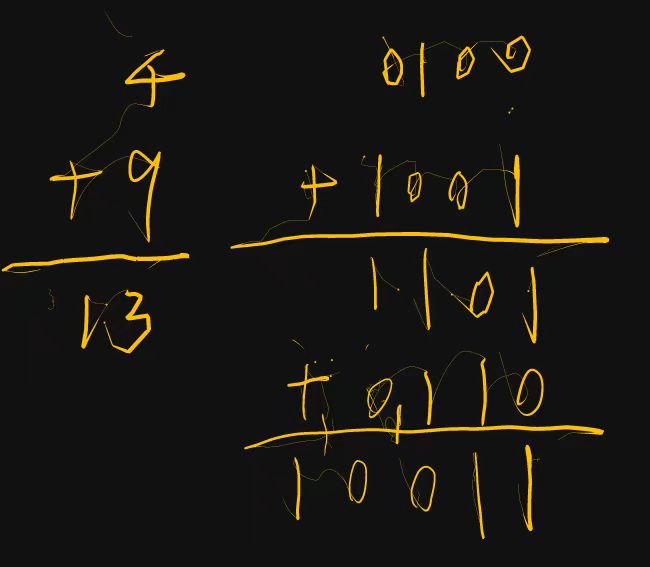 4
+ 9
13
0100
+ 1001
1101
+ 0110
10011